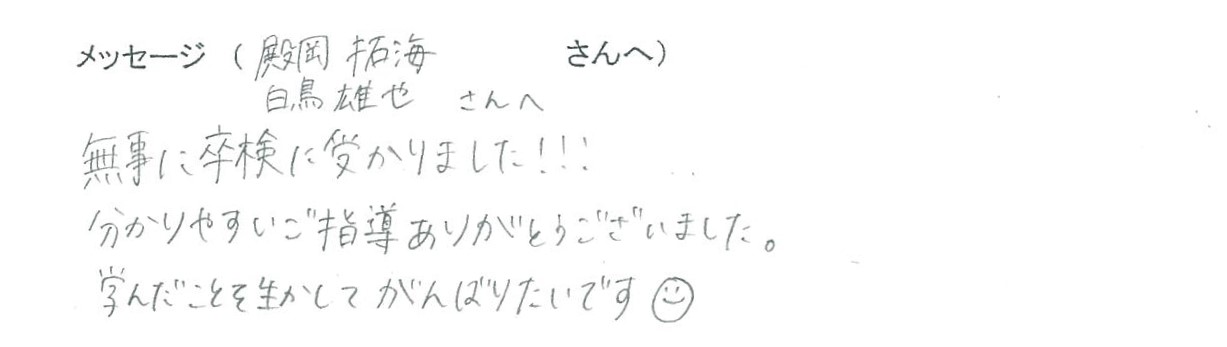 メッセージ（殿岡 拓海 さんへ）
白鳥 雄也 さんへ
無事に卒検に受かりました!!!
分かりやすいご指導ありがとうございました。
学んだことを生かしてがんばりたいです☺